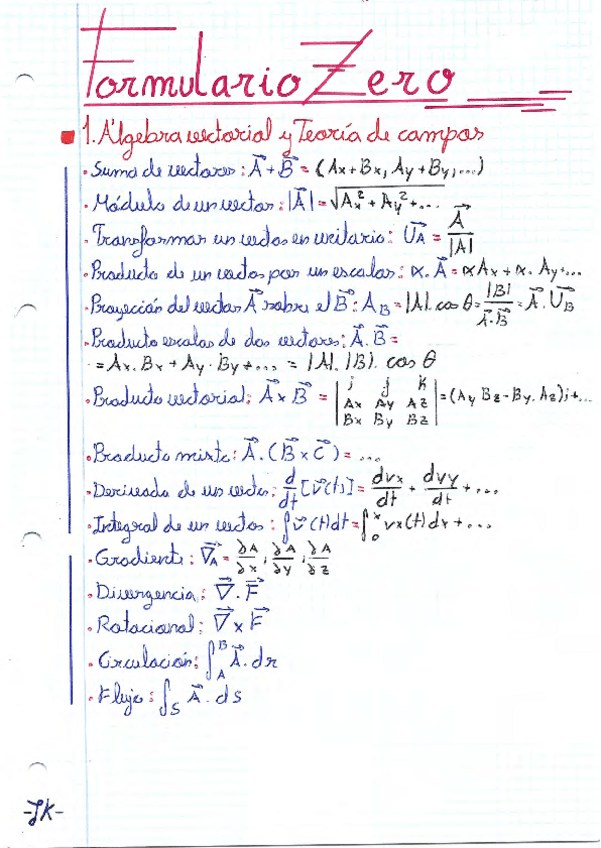 Formulario Zero
1. Álgebra vectorial y Teoría de campos
· Suma de vectores: A⃗ + B⃗ = (Ax + Bx, Ay + By, ...)
· Módulo de un vector: |A⃗| = √(Ax² + Ay² + ...)
· Transformar un vector en unitario: U⃗A = A⃗ / |A|
· Producto de un vector por un escalar: α . A⃗ = αAx + α . Ay + ...
· Proyección del vector A⃗ sobre el B⃗: AB = |A| . cos θ = |B| / A⃗ . B⃗ = A⃗ . U⃗B
· Producto escalar de dos vectores: A⃗ . B⃗ =
= Ax . Bx + Ay . By + ... = |A| . |B| . cos θ
· Producto vectorial: A⃗ x B⃗ = | i j k ; Ax Ay Az ; Bx By Bz | = (Ay Bz - By . Az)i + ...
· Producto mixto: A⃗ . (B⃗ x C⃗) = ...
· Derivada de un vector: d/dt [v⃗(t)] = dvx/dt + dvy/dt + ...
· Integral de un vector: ∫ v⃗(t)dt = ∫₀ˣ vx(t)dx + ...
· Gradiente: ∇⃗A = ∂A/∂x , ∂A/∂y , ∂A/∂z
· Divergencia: ∇⃗ . F⃗
· Rotacional: ∇⃗ x F⃗
· Circulación: ∫_A^B A⃗ . dr
· Flujo: ∫_S A⃗ . ds
-JK-